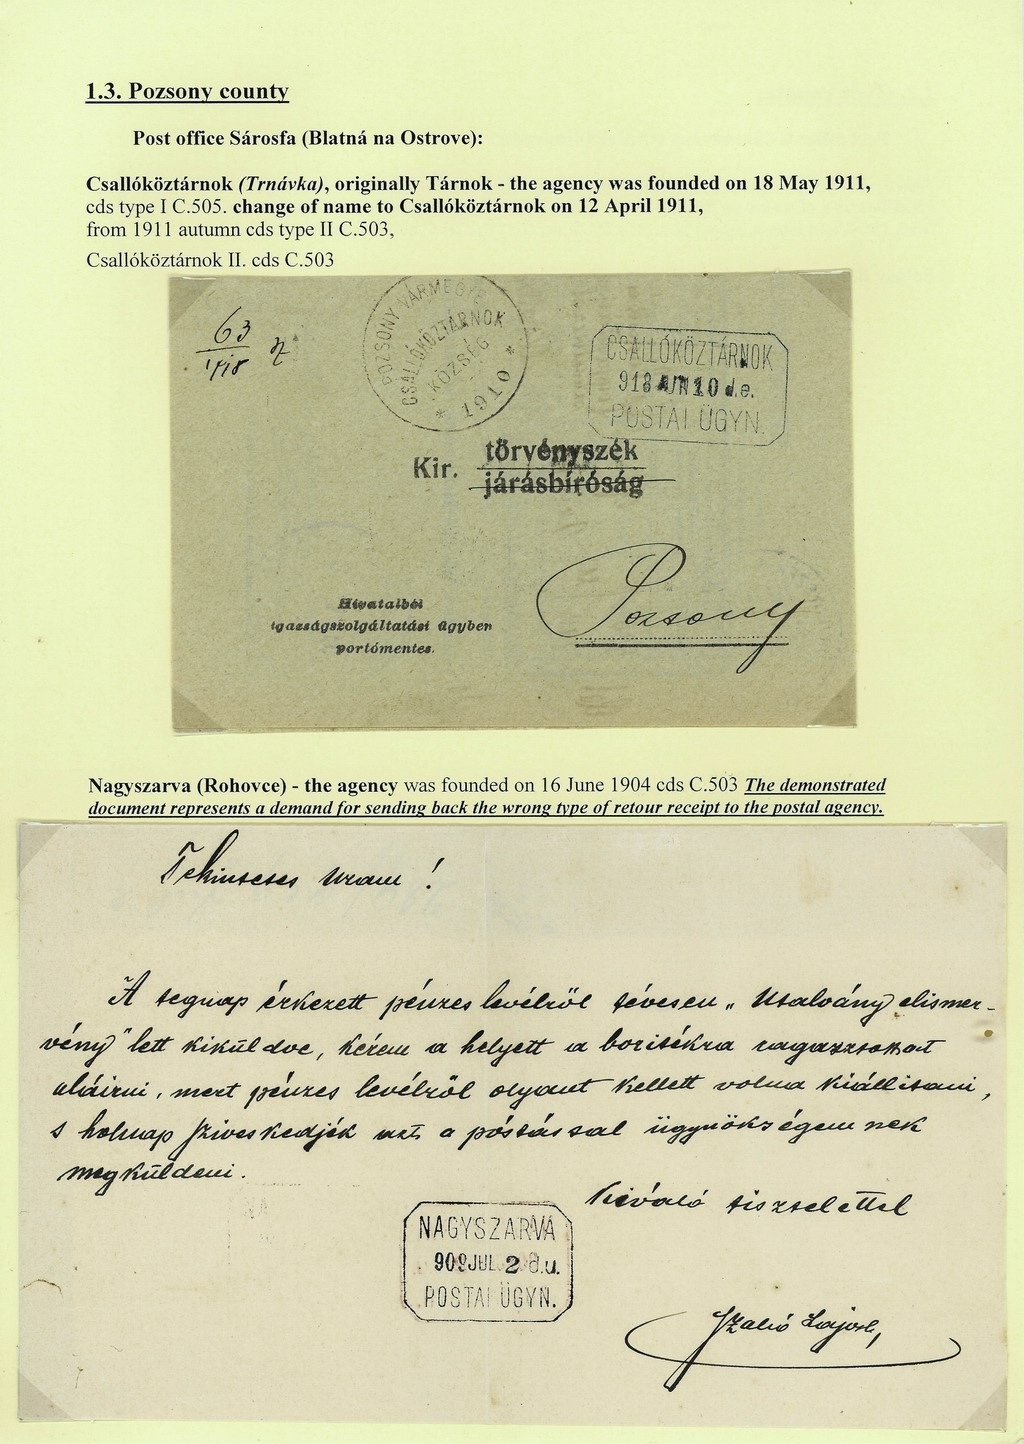 1.3. Pozsony county
Post office Sárosfa (Blatná na Ostrove):
Csallóköztárnok (Trnávka), originally Tárnok - the agency was founded on 18 May 1911,
cds type I C.505. change of name to Csallóköztárnok on 12 April 1911,
from 1911 autumn cds type II C.503,
Csallóköztárnok II. cds C.503
63
1918
POZSONY VÁRMEGYE
CSALLÓKÖZTÁRNOK
KÖZSÉG
* 1910 *
CSALLÓKÖZTÁRNOK
918 JUN 10 d.e.
POSTAI ÜGYN.
Kir. törvényszék
járásbíróság
Pozsony
Hivatalból
igazságszolgáltatási ügyben
portómentes.
Nagyszarva (Rohovce) - the agency was founded on 16 June 1904 cds C.503 The demonstrated
document represents a demand for sending back the wrong type of retour receipt to the postal agency.
Tekintetes Uram !
A tegnap érkezett pénzes levélről tévesen „Utalvány elismer-
vény" lett kiküldve, kérem a helyett a borítékra ragasztottat
aláirni, mert pénzes levélről olyant kellett volna kiállitani,
s holnap sziveskedjék azt a póstással ügynökségemnek
megküldeni.
Kiváló tisztelettel
NAGYSZARVA
909 JUL 2 d.u.
POSTAI ÜGYN.
Szabó Lajos